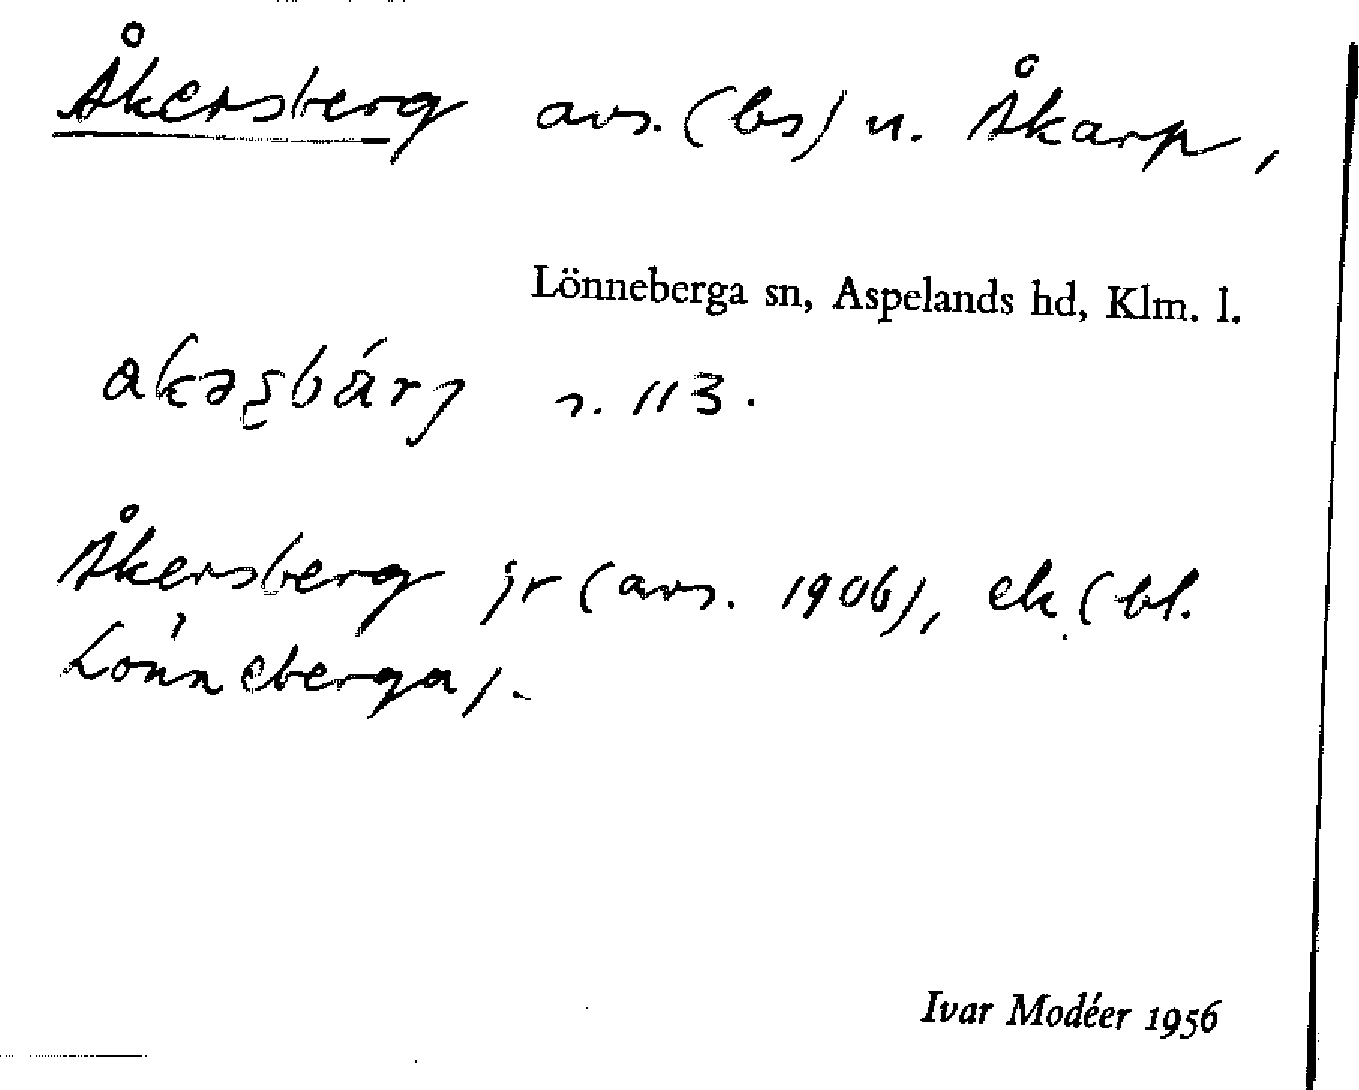 Åkersberg avs. (bs) u. Åkarp,
Lönneberga sn, Aspelands hd, Klm. l.
s. 113.
Åkersberg jr (avs. 1906), ek (bl.
Lönneberga).
Ivar Modéer 1956